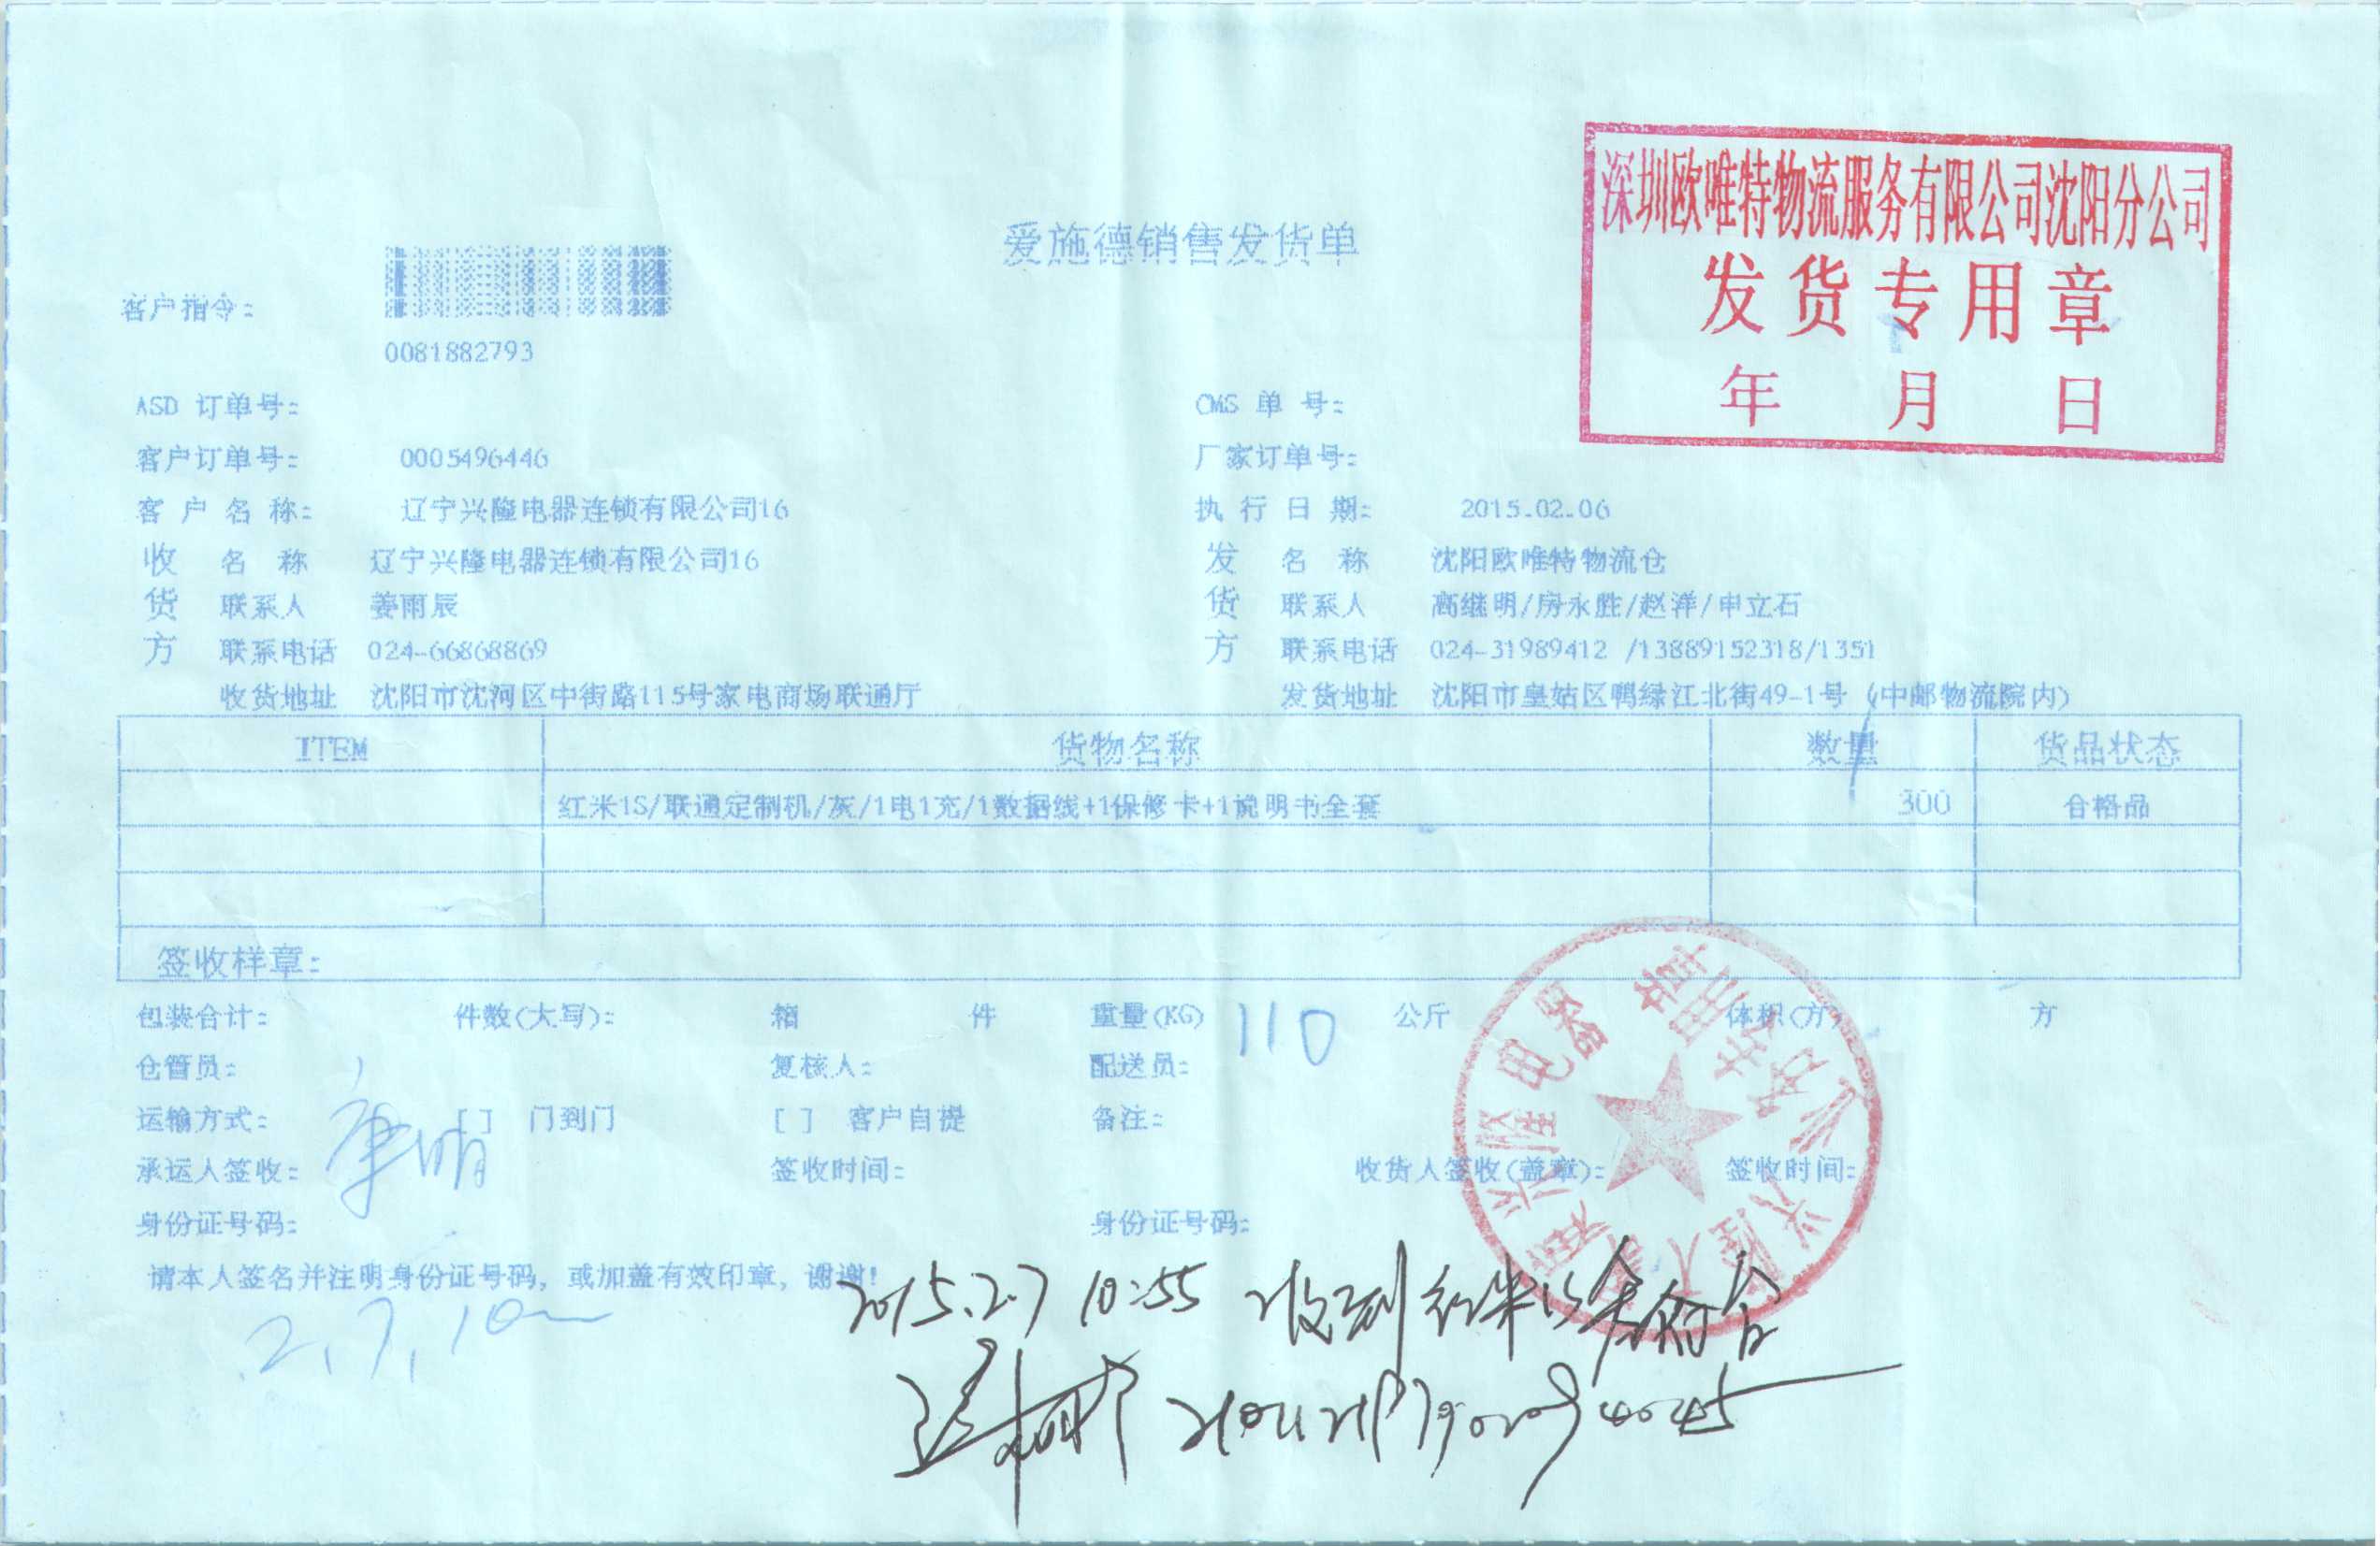 深圳欧唯特物流服务有限公司沈阳分公司
发货专用章
年 月 日
爱施德销售发货单
客户指令:
0081882793
ASD 订单号: CMS 单 号:
客户订单号: 0005496446 厂家订单号:
客 户 名 称: 辽宁兴隆电器连锁有限公司16 执 行 日 期: 2015.02.06
收 名 称 辽宁兴隆电器连锁有限公司16 发 名 称 沈阳欧唯特物流仓
货 联系人 姜雨辰 货 联系人 高继明/房永胜/赵洋/申立石
方 联系电话 024-66868869 方 联系电话 024-31989412 /13889152318/1351
收货地址 沈阳市沈河区中街路115号家电商场联通厅 发货地址 沈阳市皇姑区鸭绿江北街49-1号 (中邮物流院内)
ITEM 货物名称 数量 货品状态
红米1S/联通定制机/灰/1电1充/1数据线+1保修卡+1说明书全套 300 合格品
签收样章:
包装合计: 件数(大写): 箱 件 重量(KG) 110 公斤 体积(方) 方
仓管员: 复核人: 配送员:
运输方式: [ ] 门到门 [ ] 客户自提 备注:
承运人签收: 签收时间: 收货人签收(盖章): 签收时间:
身份证号码: 身份证号码:
请本人签名并注明身份证号码, 或加盖有效印章, 谢谢!
2015.2.7 10:55 收到红米1S 符合
2.7.10